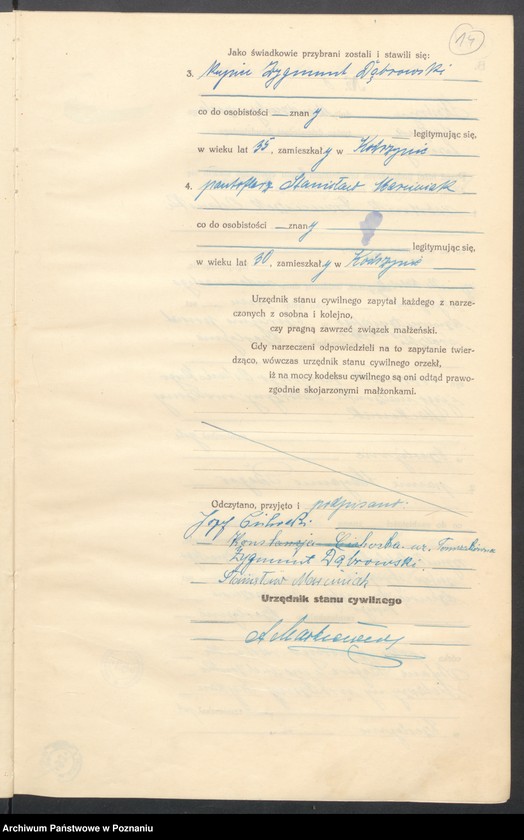 14
Jako świadkowie przybrani zostali i stawili się:
3. kupiec Zygmunt Dąbrowski
co do osobistości znany
legitymując się,
w wieku lat 35, zamieszkały w
4. pantoflarz Stanisław Marciniak
co do osobistości znany
legitymując się,
w wieku lat 30, zamieszkały w
Urzędnik stanu cywilnego zapytał każdego z narze-
czonych z osobna i kolejno,
czy pragną zawrzeć związek małżeński.
Gdy narzeczeni odpowiedzieli na to zapytanie twier-
dząco, wówczas urzędnik stanu cywilnego orzekł,
iż na mocy kodeksu cywilnego są oni odtąd prawo-
zgodnie skojarzonymi małżonkami.
Odczytano, przyjęto i podpisano:
Józef Cichocki
Konstancja Cichocka ur.
Zygmunt Dąbrowski.
Stanisław Marciniak
Urzędnik stanu cywilnego
Archiwum Państwowe w Poznaniu